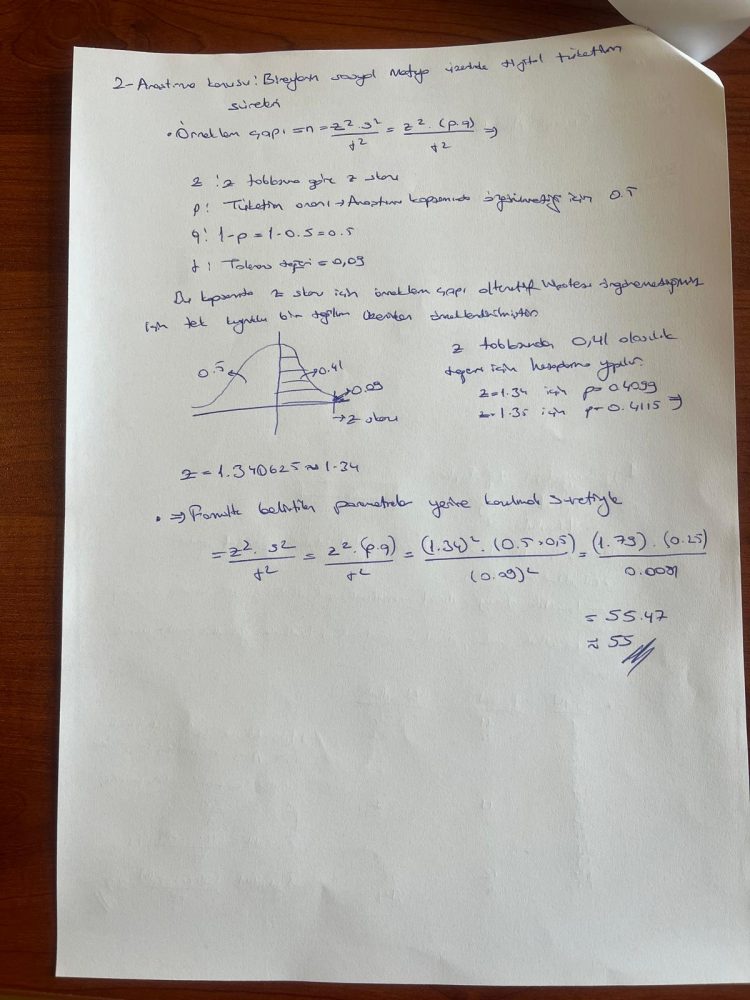 2- Araştırma konusu: Bireylerin sosyal medya üzerinde dijital tüketim
süreleri
• Örneklem çapı = n = z². s² / t² = z². (p.q) / t² ⇒
z : z tablosuna göre z skoru
p : Tüketim oranı → Araştırma kapsamında öngörülmediği için 0.5
q : 1-p = 1-0.5 = 0.5
t : Tolerans değeri = 0,09
Bu kapsamda z skoru için örneklem çapı alternatif hipotezi öngörmediğimiz
için tek kuyruklu bir dağılım üzerinden
z tablosundan 0,41 olasılık
değeri için hesaplama yapılır.
z=1.34 için p=0.4099
z=1.35 için p=0.4115 ⇒
0.5
0.41
0.09
→ z skoru
z = 1.340625 ≈ 1.34
• ⇒ Formülde belirtilen parametreler yerine konulmak suretiyle
= z². s² / t² = z². (p.q) / t² = (1.34)². (0.5×0,5) / (0.09)² = (1.79). (0.25) / 0.0081
= 55.47
≈ 55